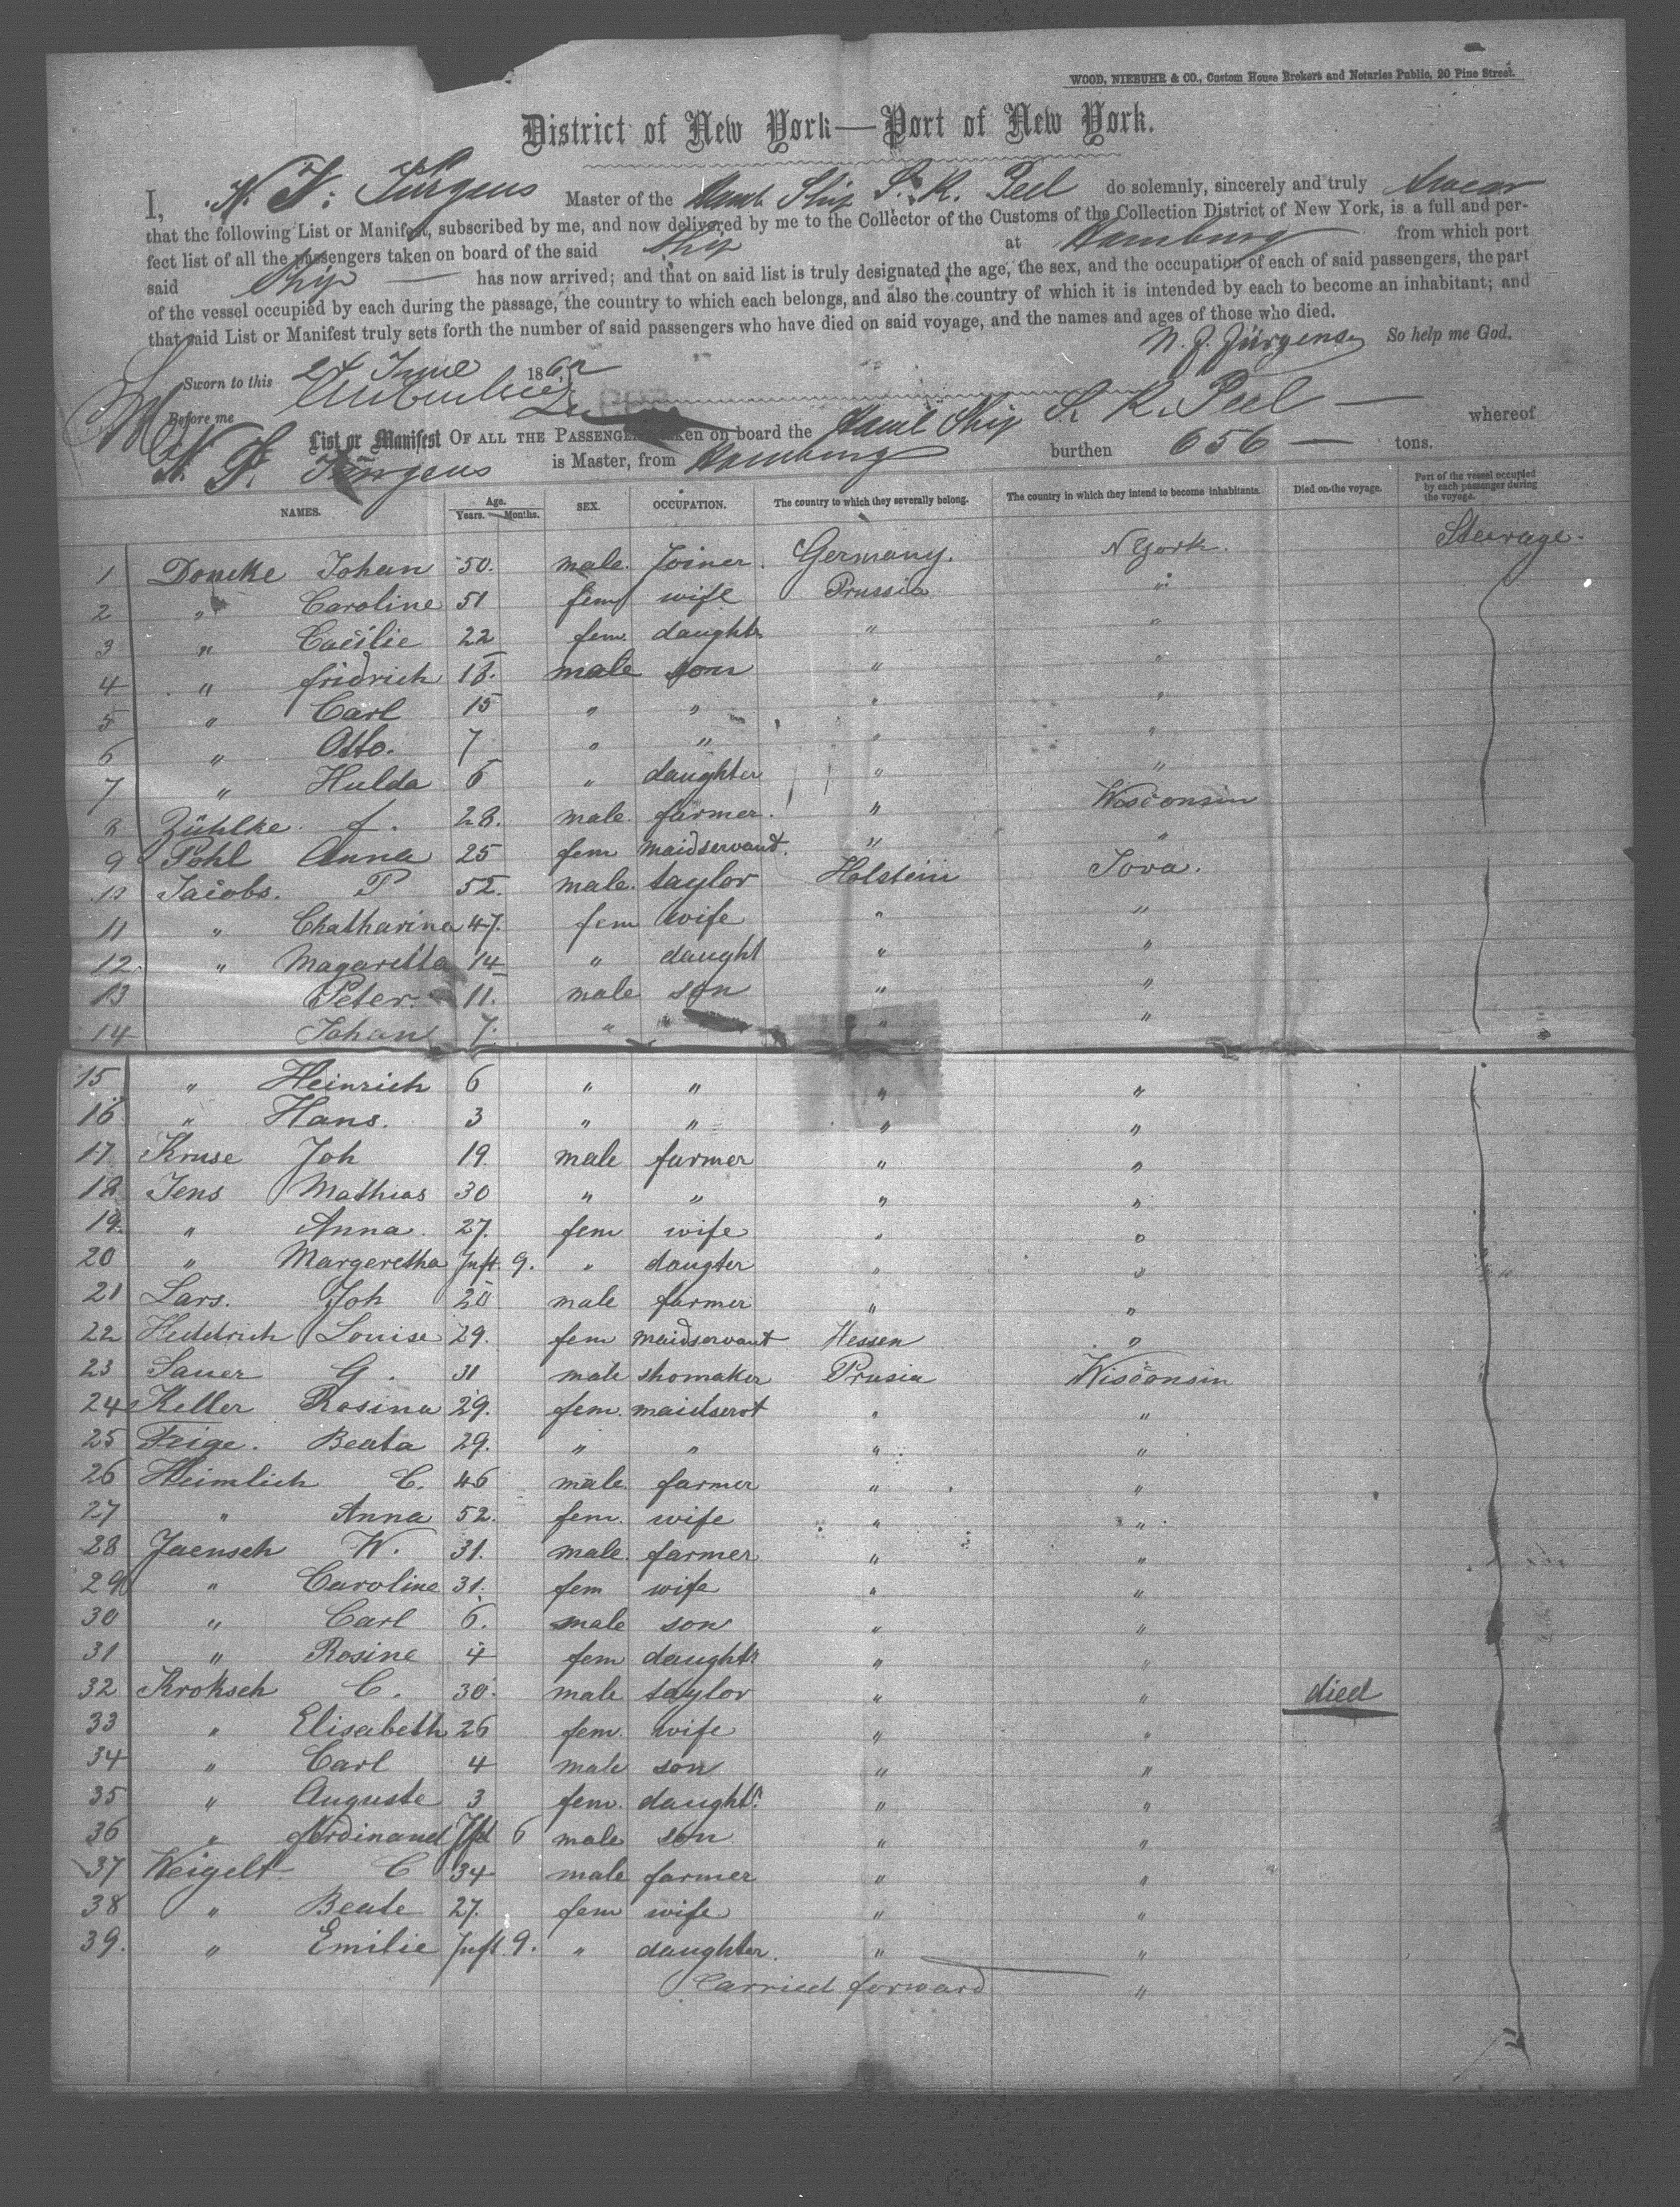 WOOD, NIEBUHR & CO., Custom House Brokers and Notaries Public, 20 Pine Street.
District of New York—Port of New York.
I, N. F. Jürgens Master of the Hamb Ship S. R. Peel do solemnly, sincerely and truly swear
that the following List or Manifest, subscribed by me, and now delivered by me to the Collector of the Customs of the Collection District of New York, is a full and per-
fect list of all the passengers taken on board of the said Ship at Hamburg from which port
said Ship has now arrived; and that on said list is truly designated the age, the sex, and the occupation of each of said passengers, the part
of the vessel occupied by each during the passage, the country to which each belongs, and also the country of which it is intended by each to become an inhabitant; and
that said List or Manifest truly sets forth the number of said passengers who have died on said voyage, and the names and ages of those who died.
N. F. Jürgens So help me God.
Sworn to this 24 June 1862
Before me
List or Manifest OF ALL THE PASSENGERS taken on board the Hamb Ship S. R. Peel whereof
N. F. Jürgens is Master, from Hamburg burthen 656 tons.
NAMES. Age. Years. Months. SEX. OCCUPATION. The country to which they severally belong. The country in which they intend to become inhabitants. Died on the voyage. Part of the vessel occupied by each passenger during the voyage.
1 Domcke Johan 50. male. Joiner. Germany. N York. Steerage.
2 " Caroline 51 fem wife Prussia "
3 " Caecilie 22 fem. daughtr " "
4 " fridrich 18. male son " "
5 " Carl 15 " " " "
6 " Otto. 7 " " " "
7 " Hulda 6 " daughter " "
8 Zühlke f. 28. male. farmer. " Wisconsin
9 Pohl Anna 25 fem maidservant. " "
10 Jacobs. P 52. male. taylor Holstein Iova.
11 " Chatharina 47. fem wife " "
12. " Magaretta 14 " daught " "
13 Peter. 11. male son " "
14 Johan 7. " " "
15 " Heinrich 6 " " " "
16 " Hans. 3 " " " "
17 Kruse Joh 19. male farmer " "
18 Jens Mathias 30 " " " "
19. " Anna. 27. fem wife " "
20 " Margeretha Inft. 9. " daugter " "
21 Lars. Joh 20 male farmer " "
22 Louise 29. fem maidservant Hessen "
23 Sauer G. 31 male shomaker Prusia Wisconsin
24 Keller Rosina 29. fem. maidservt " "
25 Feige. Beata 29. " " " "
26 Heimlich C. 46 male. farmer " "
27 " Anna 52. fem. wife " "
28 Jaensch W. 31. male. farmer " "
29 " Caroline 31. fem wife " "
30 " Carl 6. male son " "
31 " Rosine 4 fem daughtr " "
32 Kroksch C. 30. male taylor " " died
33 " Elisabeth 26 fem. wife " "
34 " Carl 4 male son " "
35 " Auguste 3 fem. daughtr. " "
36 " ferdinand Inft 6 male son " "
37 Weigelt C 34 male farmer " "
38 " Beate 27. fem wife " "
39. " Emilie Inft. 9. " daughter. " "
Carried forward "